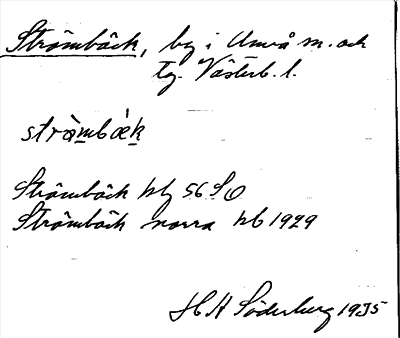 Strömbäck, by i Umeå sn. och
tg. Västerb. l.
stròmbǽk
Strömbäck hb 56 SO
Strömbäck norra hb 1929
H A Söderberg 1935